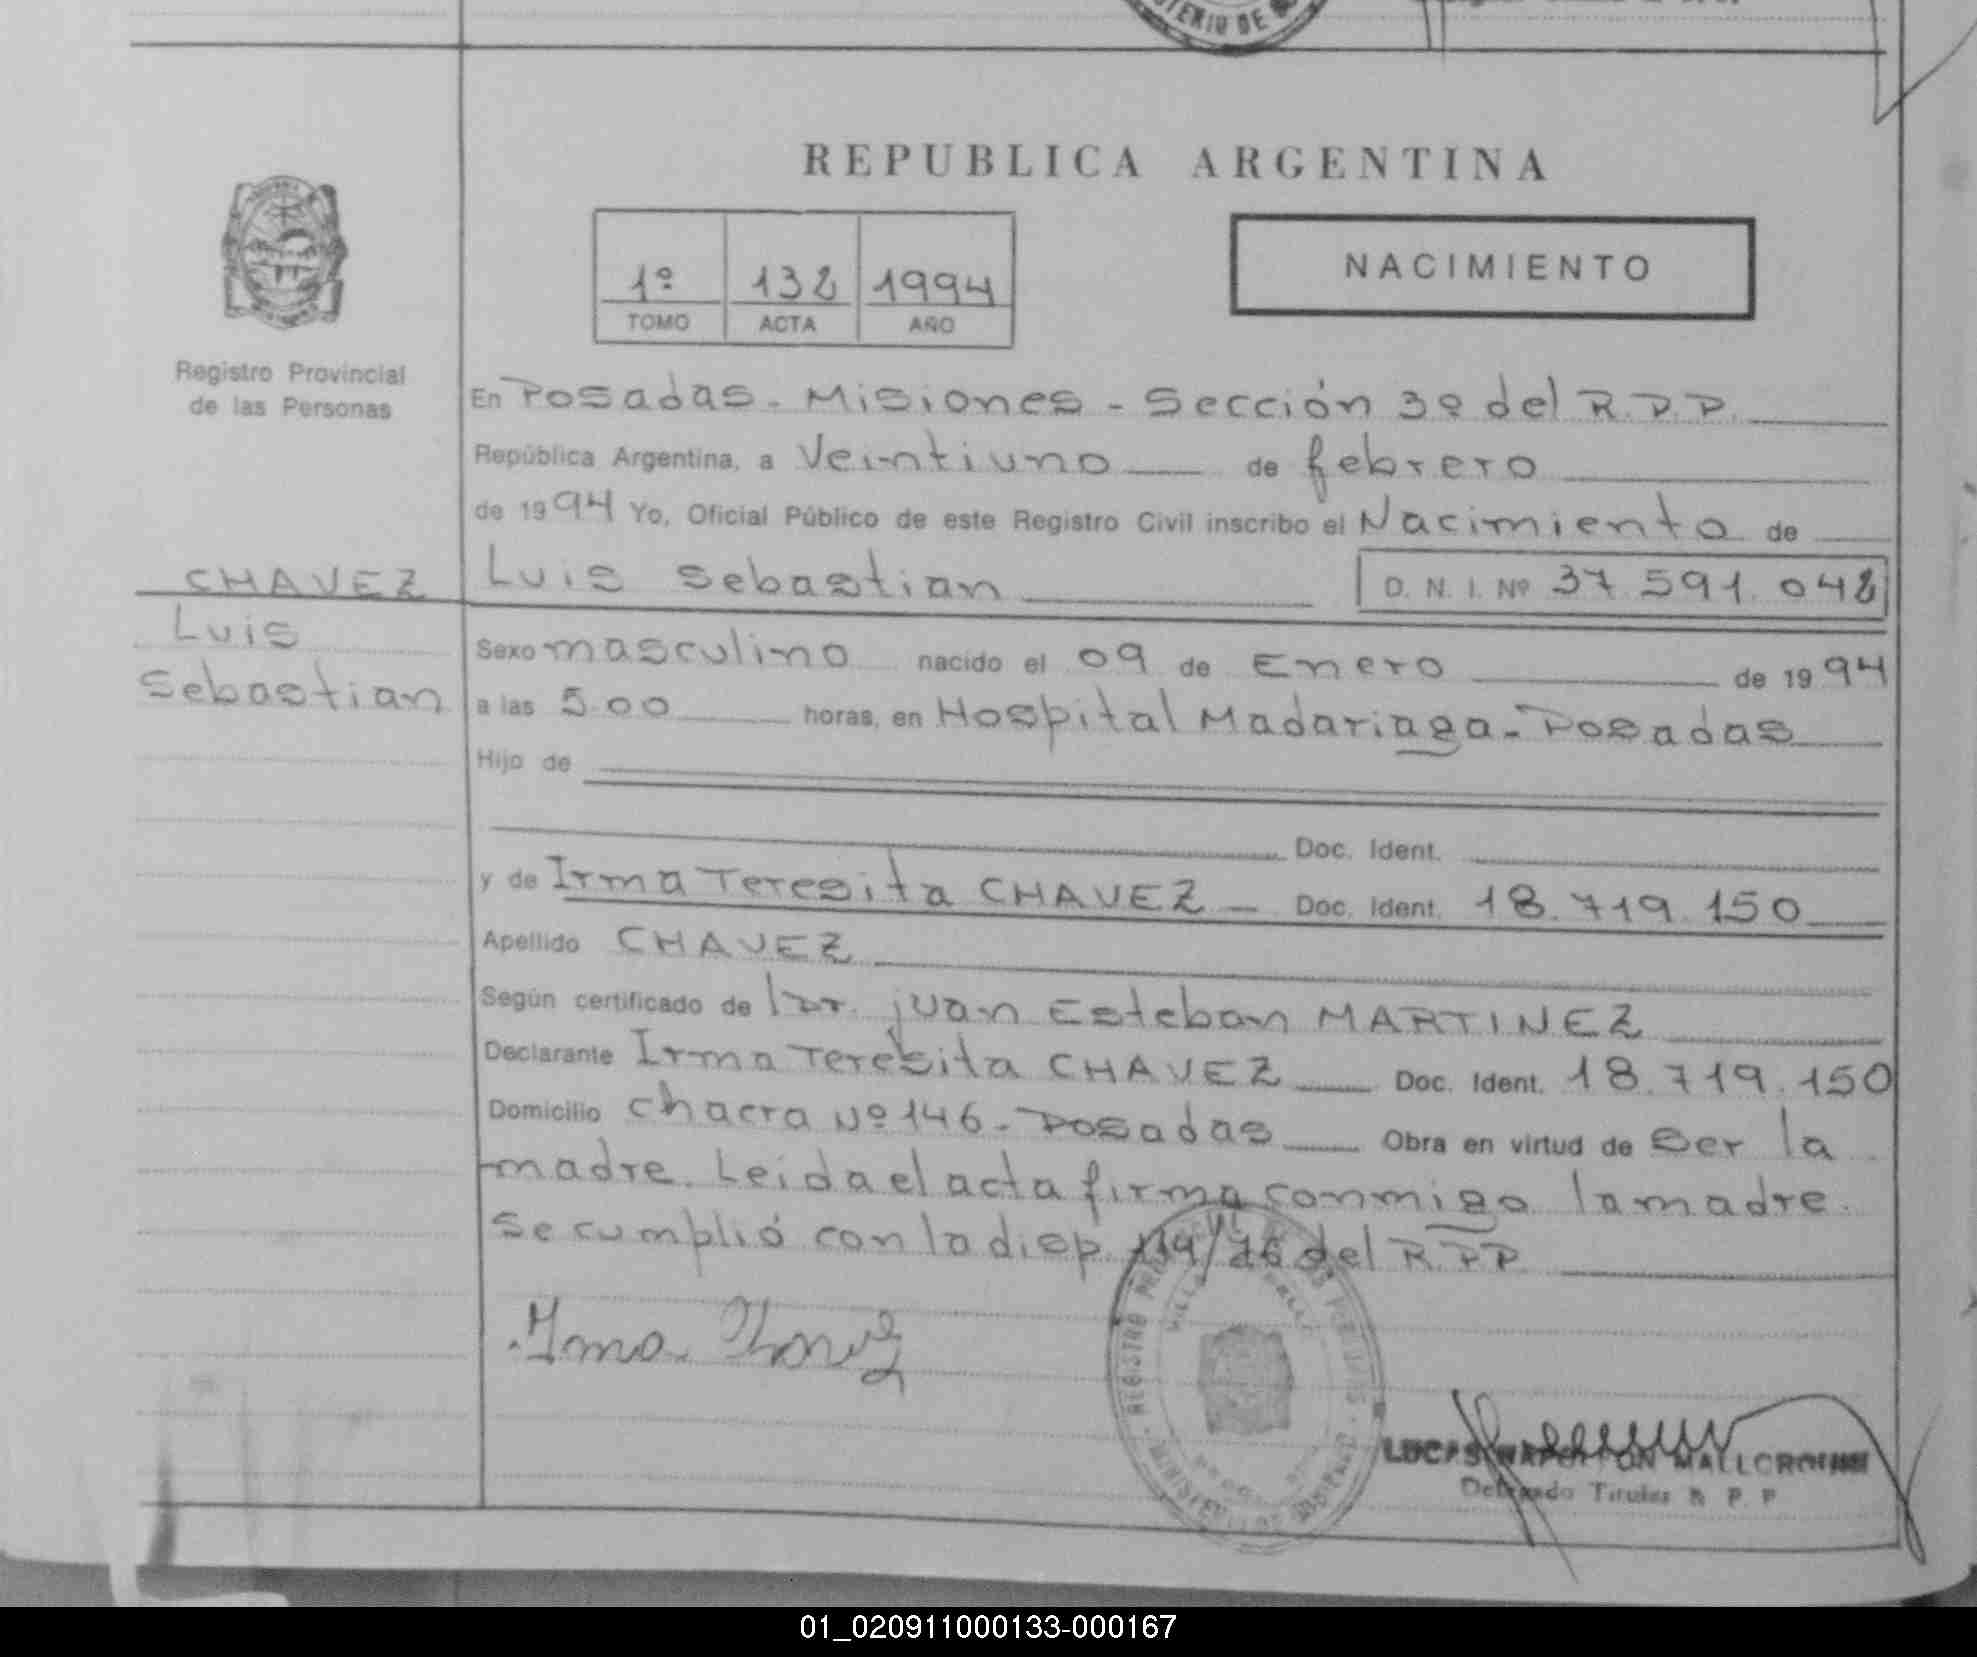 REPUBLICA ARGENTINA
1º 132 1994
TOMO ACTA AÑO
NACIMIENTO
Registro Provincial
de las Personas
En Posadas - Misiones - Sección 3º del R.P.P.
República Argentina, a Veintiuno de febrero
de 1994 Yo, Oficial Público de este Registro Civil inscribo el Nacimiento de
CHAVEZ
Luis
Sebastian
Luis Sebastian D. N. I. Nº 37.591.048
Sexo masculino nacido el 09 de Enero de 1994
a las 5.00 horas, en Hospital Madariaga - Posadas
Hijo de
Doc. Ident.
y de Irma Teresita CHAVEZ - Doc. Ident. 18.719.150
Apellido CHAVEZ
Según certificado de Dr. juan Esteban MARTINEZ
Declarante Irma Teresita CHAVEZ Doc. Ident. 18.719.150
Domicilio chacra Nº 146 - Posadas Obra en virtud de ser la
madre. Leida el acta firma conmigo la madre.
Se cumplió con la disp. 114/76 del R.P.P.
Irma Chavez
REGISTRO
LUCAS NAPOLEON
Delegado Titular R. P. P.
01_020911000133-000167